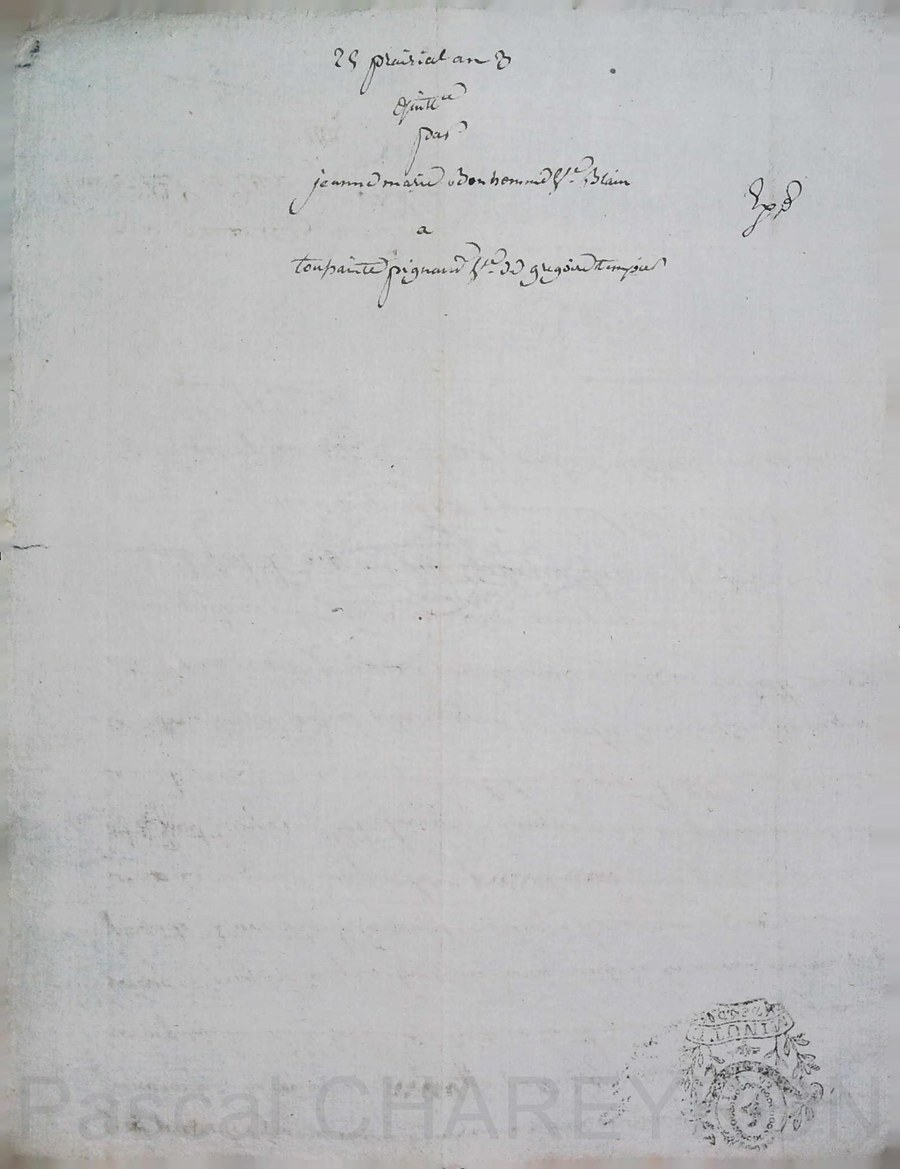 25 prairial an 3
quitt.ce
par
jeanne marie Bonhomme V.e Blain
Exp.é
a
toussainte pignard V.e de gregoire
MINUT
Pascal CHAREYRON